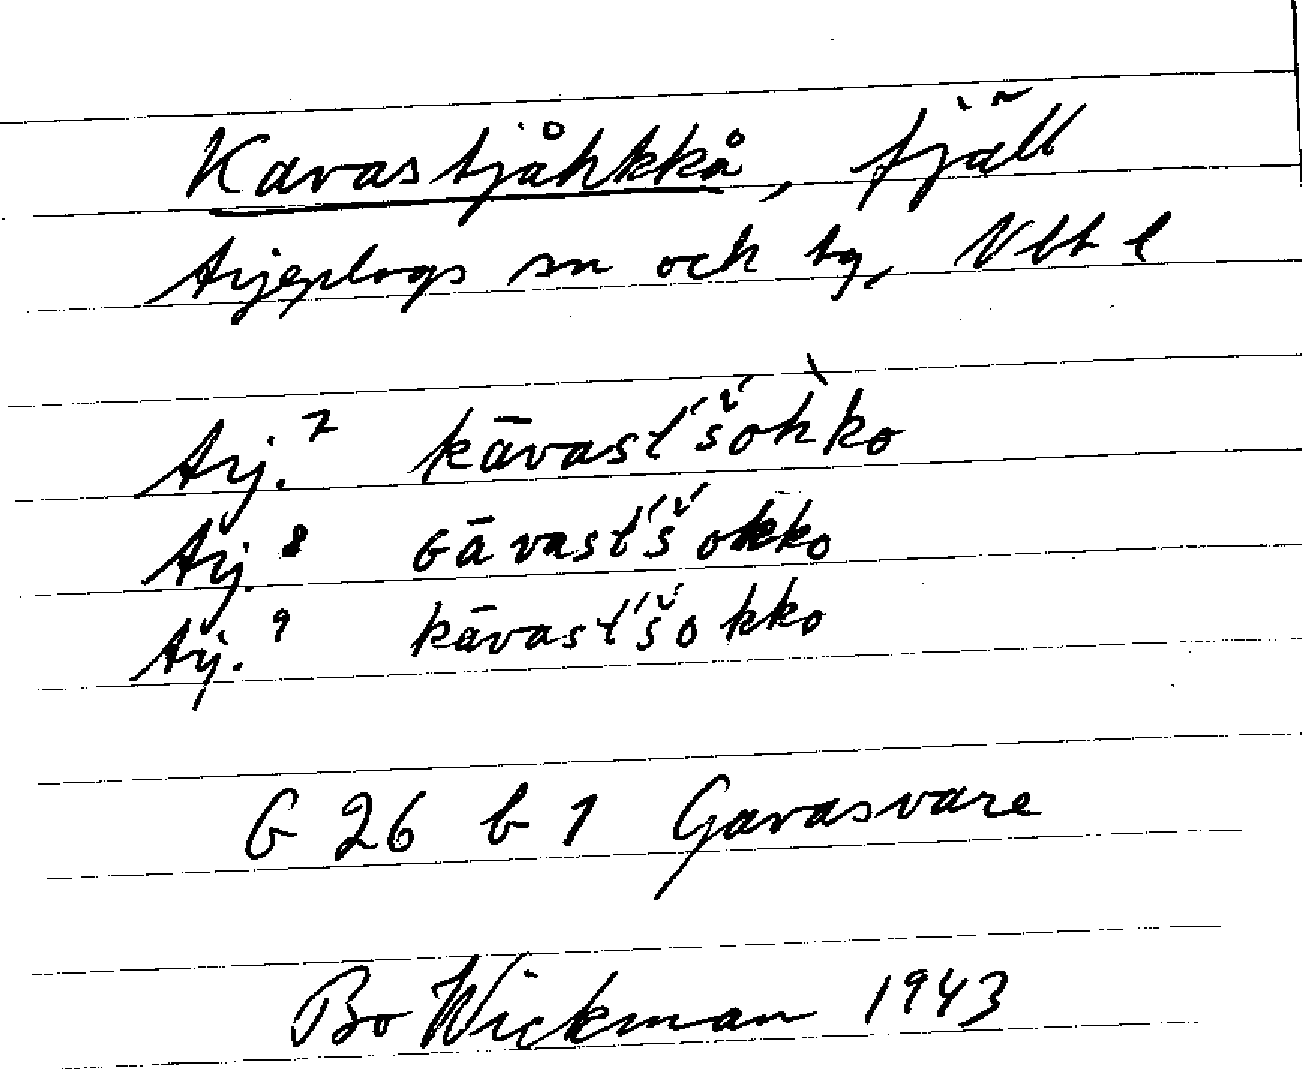 Kavastjåhkkå, fjäll
Arjeplogs sn och tg, Vbt l
Arj.⁷ kāvast́'š́ohˋko
Arj.⁸ ɢāvast́'š́okko
Arj.⁹ kāvast́'š́okko
G 26 b 1 Gavasvare
Bo Wickman 1943